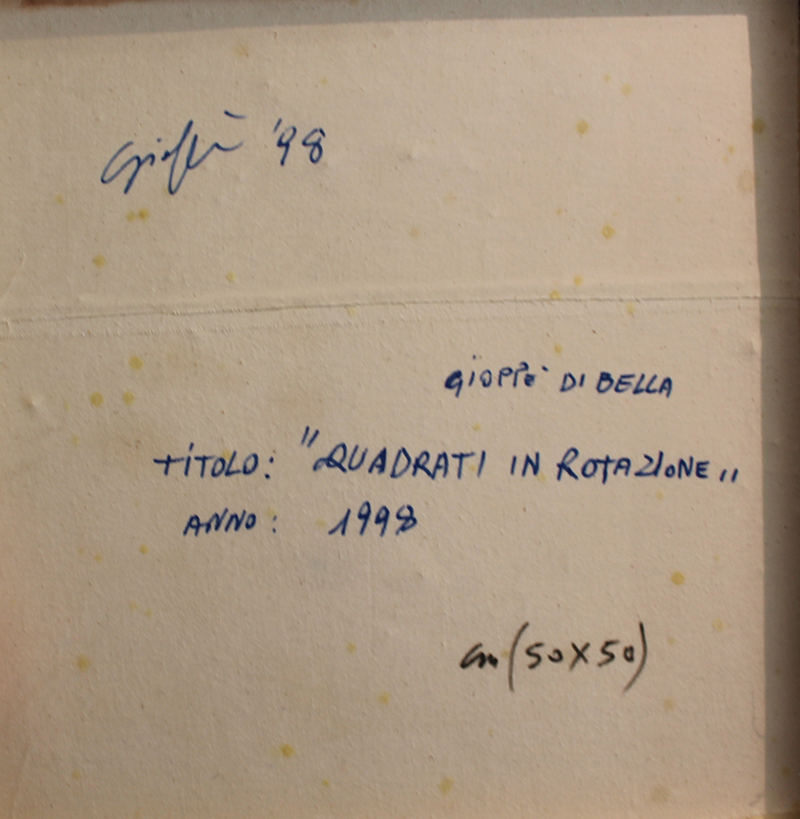 Gioppè '98
GIOPPÈ DI BELLA
TITOLO: "QUADRATI IN ROTAZIONE"
ANNO: 1998
cm (50X50)